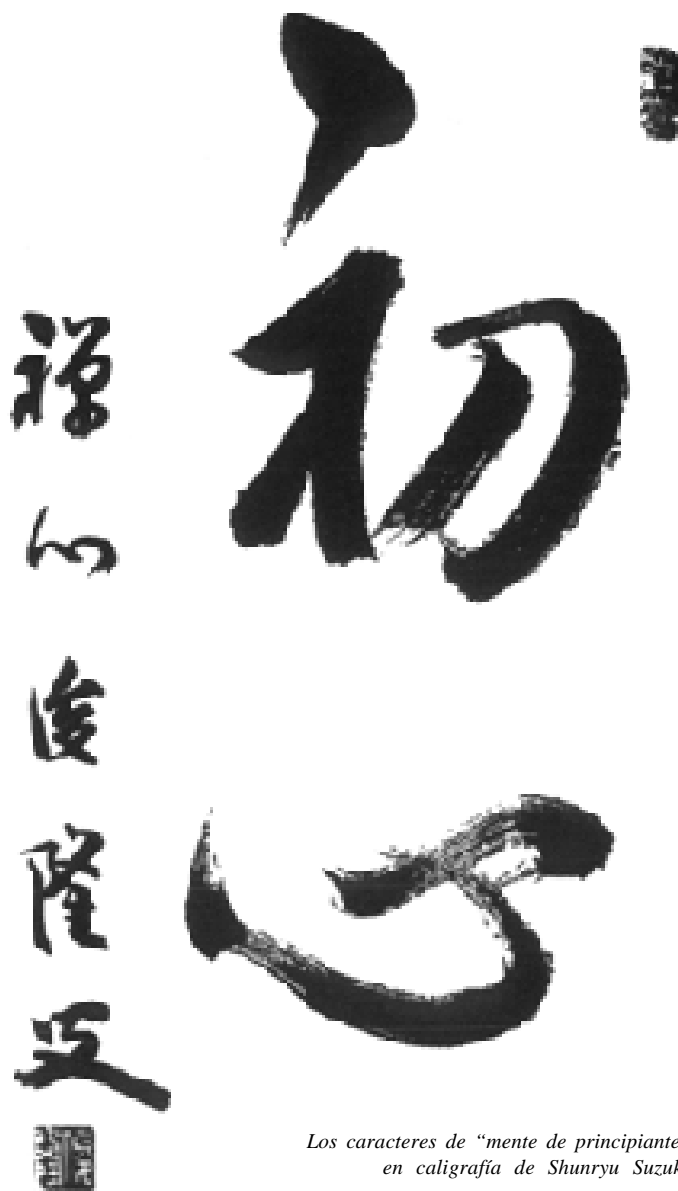 初心
禅心俊隆
Los caracteres de “mente de principiante
en caligrafía de Shunryu Suzuk